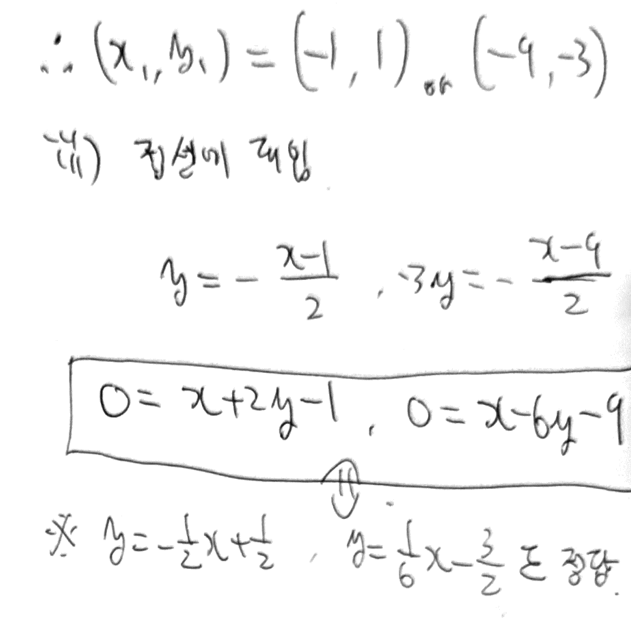 ∴ (x₁, y₁) = (-1, 1) or (-9, -3)
iii) 접선에 대입
y = - (x-1)/2 , -3y = - (x-9)/2
0 = x+2y-1 , 0 = x-6y-9
※ y = -1/2 x + 1/2 , y = 1/6 x - 3/2 도 정답.